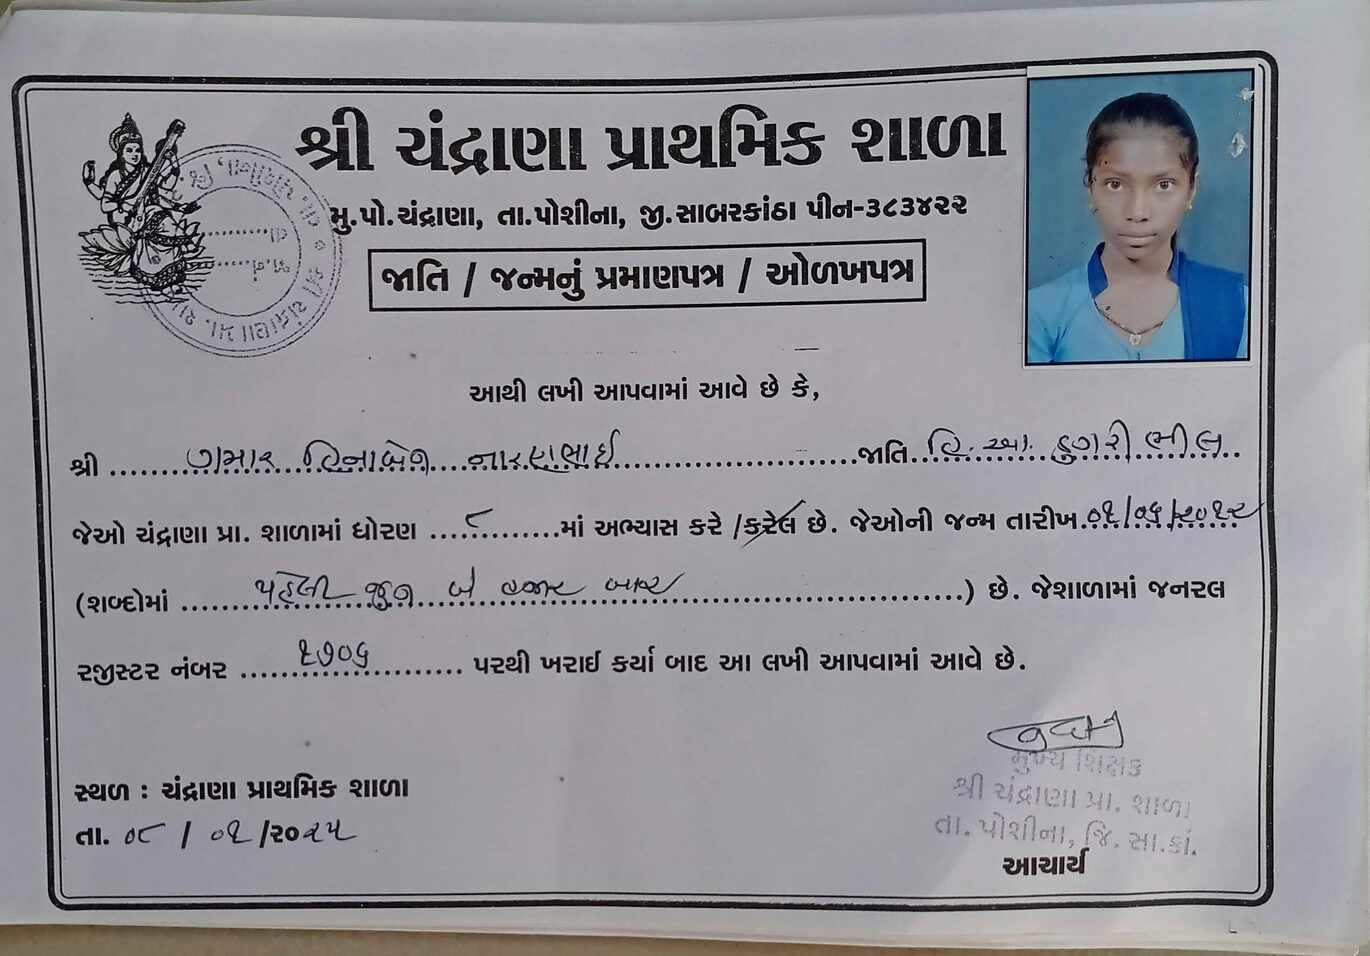 શ્રી ચંદ્રાણા પ્રાથમિક શાળા
મુ.પો.ચંદ્રાણા, તા.પોશીના, જી.સાબરકાંઠા પીન-૩૮૩૪૨૨
જાતિ / જન્મનું પ્રમાણપત્ર / ઓળખપત્ર
આથી લખી આપવામાં આવે છે કે,
શ્રી ગમાર હિનાબેન નારણભાઈ જાતિ હિ.આ. ડુંગરી ભીલ
જેઓ ચંદ્રાણા પ્રા. શાળામાં ધોરણ ૮ માં અભ્યાસ કરે /કરેલ છે. જેઓની જન્મ તારીખ ૦૧/૦૬/૨૦૧૨
(શબ્દોમાં પહેલી જુન બે હજાર બાર) છે. જેશાળામાં જનરલ
રજીસ્ટર નંબર ૧૭૦૬ પરથી ખરાઈ કર્યા બાદ આ લખી આપવામાં આવે છે.
મુખ્ય શિક્ષક
શ્રી ચંદ્રાણા પ્રા. શાળા
તા. પોશીના, જિ. સા.કાં.
આચાર્ય
સ્થળ : ચંદ્રાણા પ્રાથમિક શાળા
તા. ૦૮ / ૦૧ /૨૦૨૫